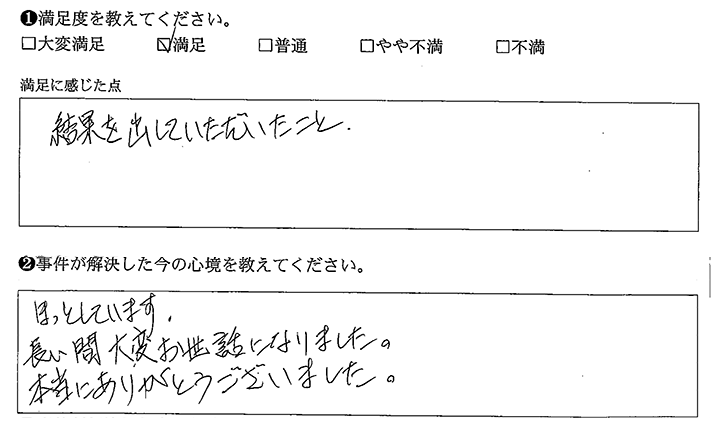 ❶満足度を教えてください。
□大変満足 ☑満足 □普通 □やや不満 □不満
満足に感じた点
結果を出していただいたこと.
❷事件が解決した今の心境を教えてください。
ほっとしています.
長い間大変お世話になりました。
本当にありがとうございました。